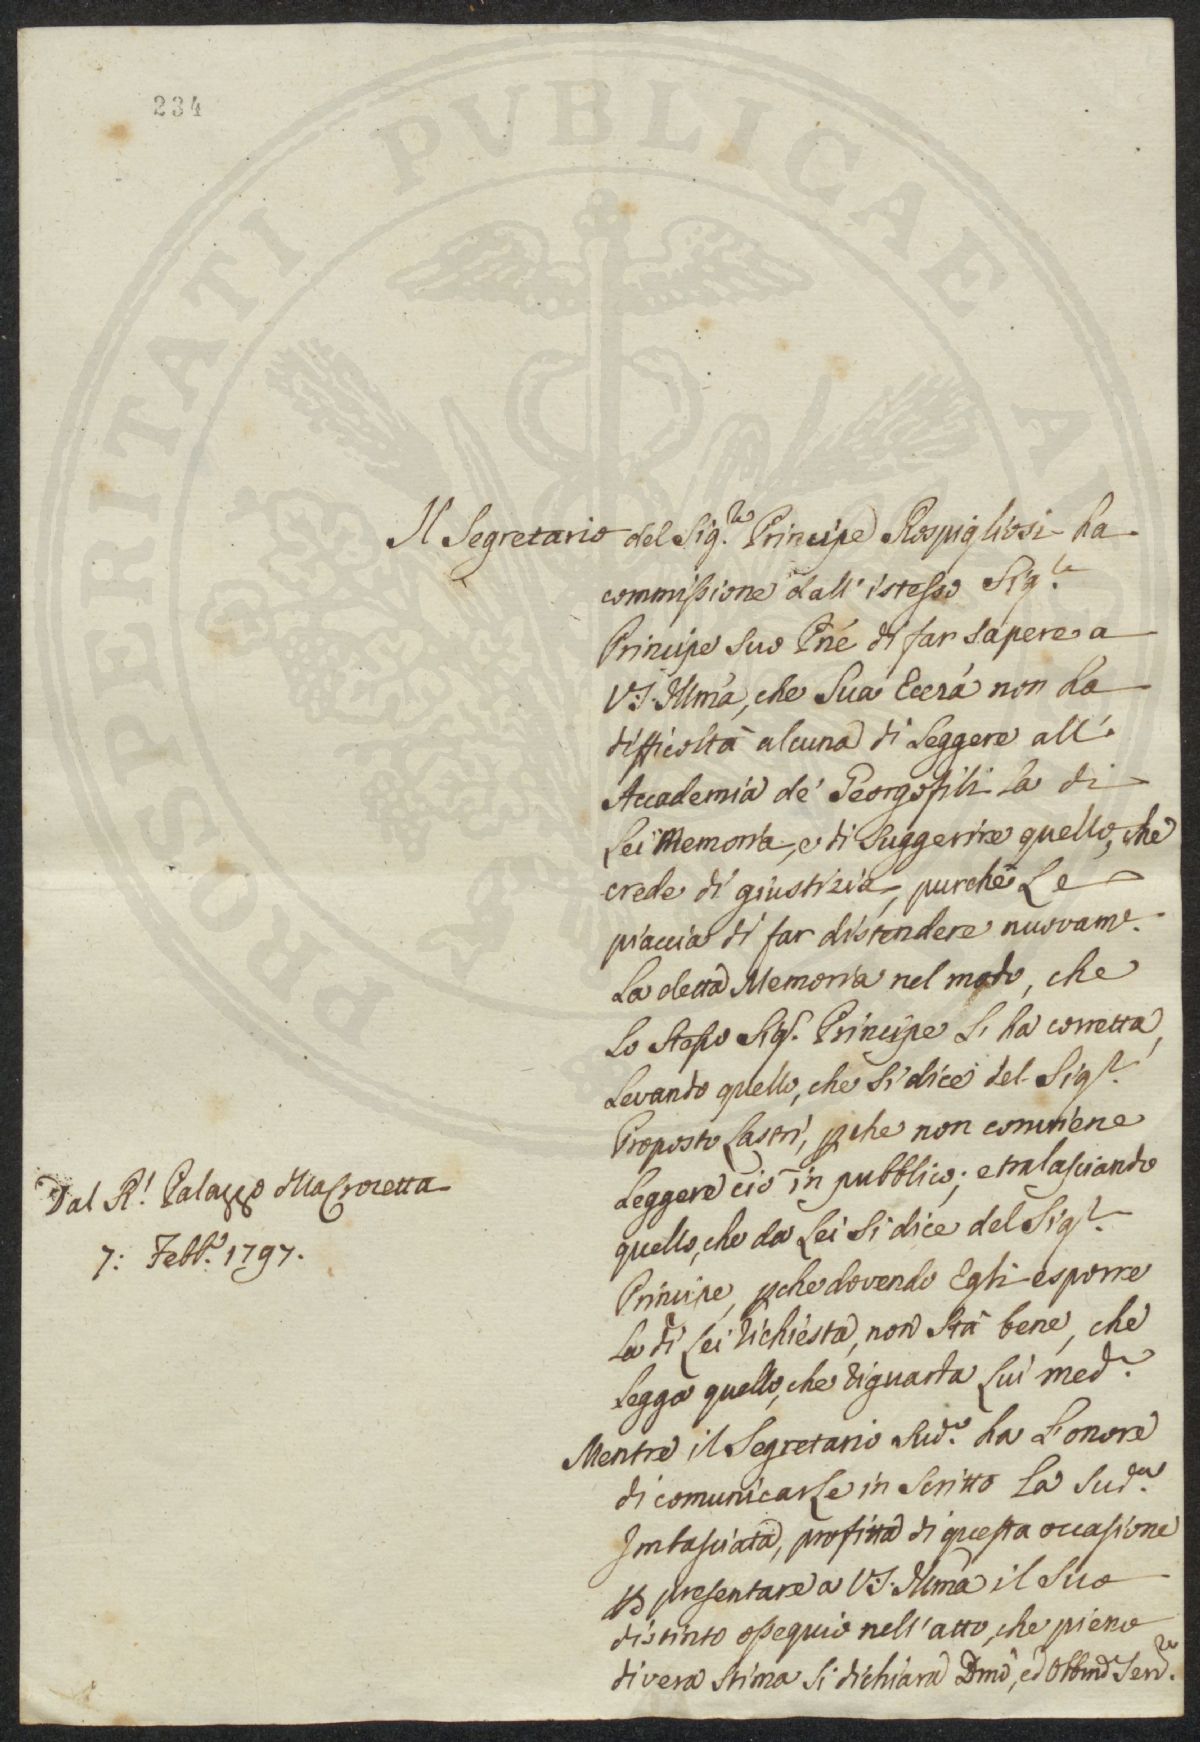 234
PROSPERITATI PVBLICAE AV
Il Segretario del Sig.re Principe Rospigliosi ha
commissione dall' istesso Sig.re
Principe suo Pñe di far sapere a
V.S. Illma, che Sua Eccza non ha
difficoltà alcuna di leggere all'
Accademia de' Georgofili la di
Lei Memoria, e di suggerire quello, che
crede di giustizia, purchè Le
piaccia di far distendere nuovame.
la detta Memoria nel modo, che
lo stesso Sigr. Principe li ha corretta,
levando quello, che si dice del Sigr.
Proposto Lastri, pche non conviene
leggere ciò in pubblico; e tralasciando
quello, che da Lei si dice del Sigr.
Principe, pche dovendo Egli esporre
la di Lei richiesta, non stà bene, che
legga quello, che riguarda Lui med.o
Mentre il Segretario sud.o ha l'onore
di comunicarLe in scritto la sud.a
Imbasciata, profitta di questa occasione
p presentare a V.S. Illma il suo
distinto ossequio nell'atto, che pieno
di vera stima si dichiara Dmo, ed Obbmo Serv.re
Dal R.l Palazzo della Crocetta
7: Febb.o 1797.